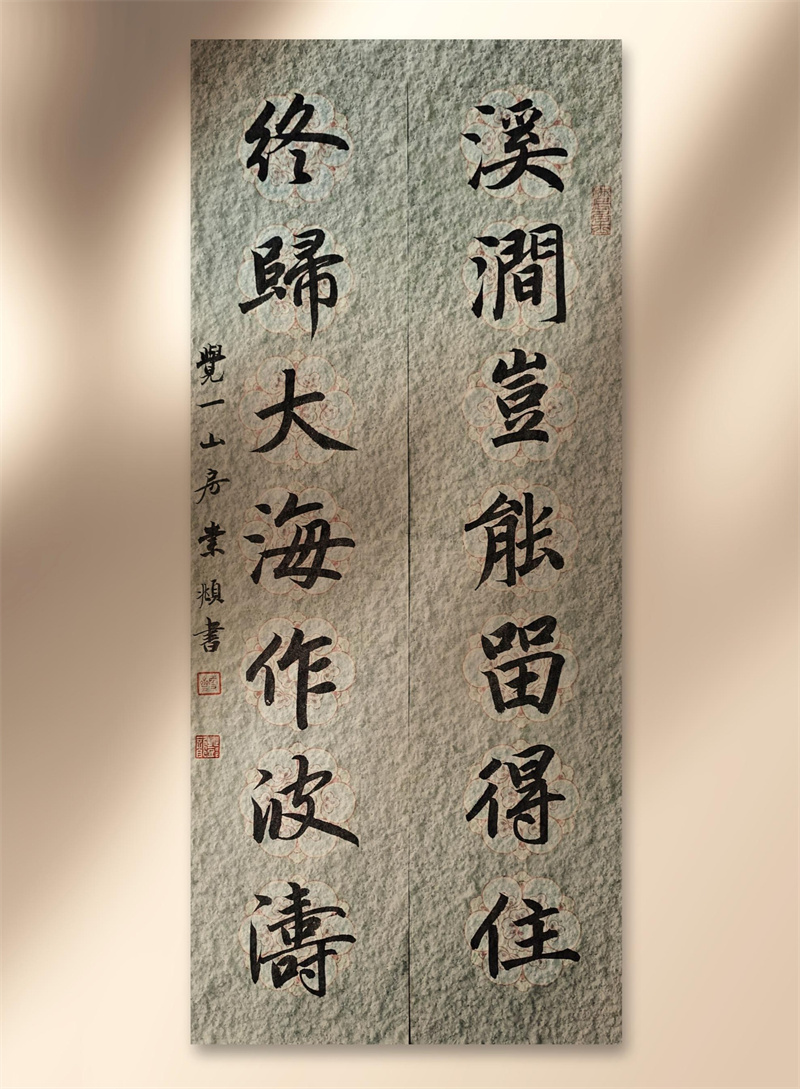 溪澗豈能留得住
終歸大海作波濤
覺一山房業順書